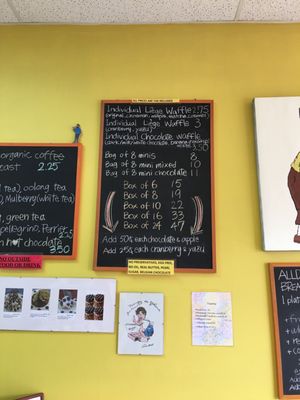 ALL PRICES ARE TAX INCLUDED
Individual Liège Waffle 2.75
(original, cinnamon, maple, matcha, caramel)
Individual Liège Waffle 3
(cranberry, yuzu)
Individual Chocolate waffle
(dark, milk, white chocolate, banana
3.30
Bag of 8 minis 8
Bag of 8 mini mixed 10
Bag of 8 mini chocolate 11
Box of 6 15
Box of 8 19
Box of 10 22
Box of 16 33
Box of 24 47
Add 50¢ each chocolate & apple
Add 25¢ each cranberry & yuzu
NO PRESERVATIVES, EGG FREE,
NO OIL, REAL BUTTER, PEARL
SUGAR, BELGIAN CHOCOLATE
organic coffee
ast 2.25
tea), oolong tea
, Mulberry (white tea)
t, green tea
pellegrino, Perrier,
2.5
n hot chocolate
3.50
NO OUTSIDE
FOOD OR DRINK
ALL
BREA
1 pla
Add